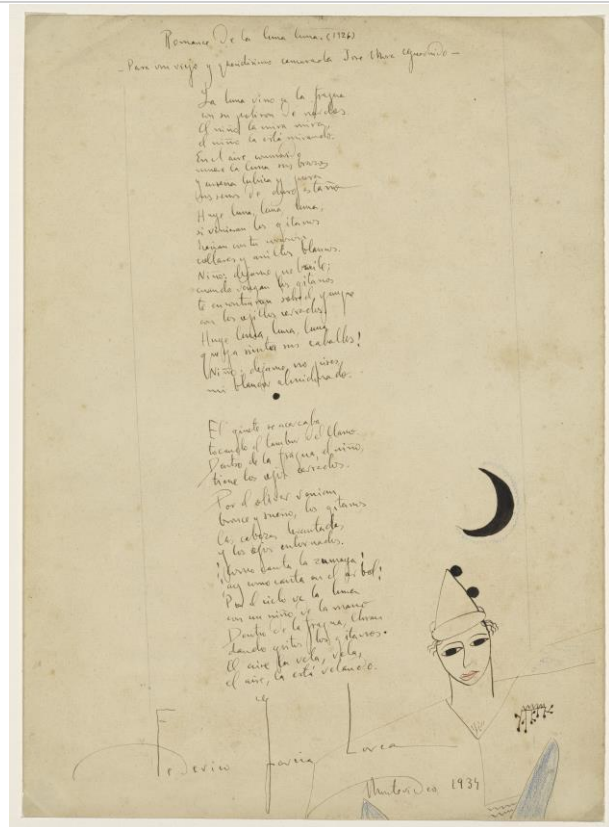 Romance de la luna luna. (1926)
- Para mi viejo y grandísimo camarada José Mora Guarnido -
La luna vino a la fragua
con su polisón de nardos
el niño la mira mira,
el niño la está mirando.
En el aire conmovido
mueve la luna sus brazos
y enseña lúbrica y pura
sus senos de duro estaño
Huye luna, luna, luna,
si vinieran los gitanos
harían con tu corazón
collares y anillos blancos.
Niño, déjame que baile;
cuando vengan los gitanos
te encontrarán sobre el yunque
con los ojillos cerrados.
Huye luna, luna, luna
que ya siento sus caballos!
Niño, déjame, no pises,
mi blancor almidonado.
El jinete se acercaba
tocando el tambor del llano.
Dentro de la fragua, el niño,
tiene los ojos cerrados.
Por el olivar venían
bronce y sueño, los gitanos
Las cabezas levantadas,
y los ojos entornados.
¡Como canta la zumaya!
¡ay como canta en el árbol!
Por el cielo va la luna
con un niño de la mano
Dentro de la fragua, lloran
dando gritos los gitanos.
El aire la vela, vela,
el aire, la está velando.
Federico García Lorca
Montevideo, 1934